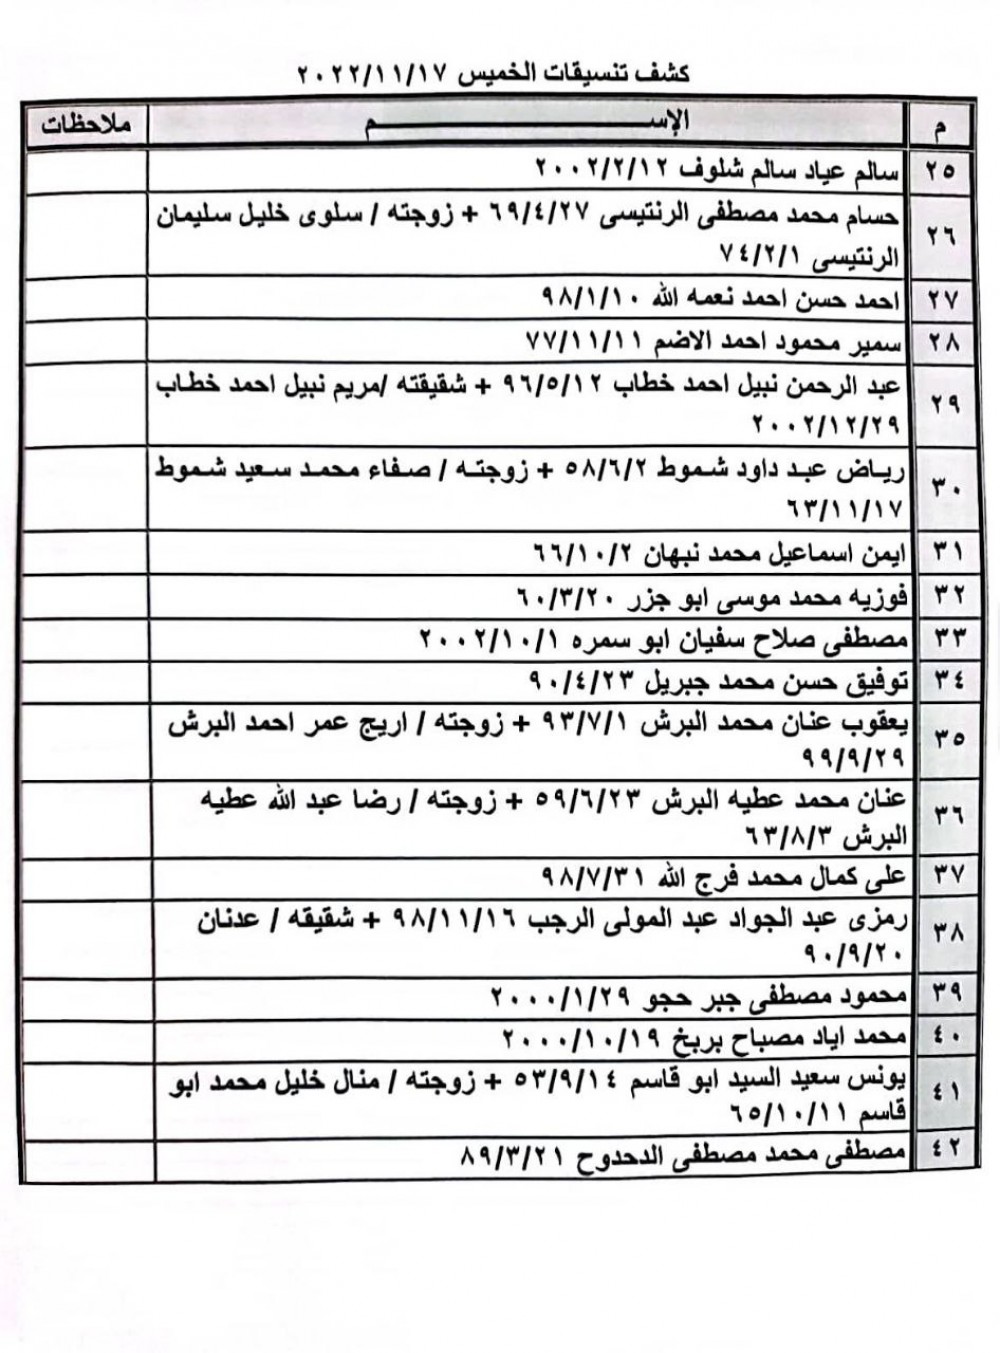 كشف تنسيقات الخميس ٢٠٢٢/١١/١٧
م الإســـــــم ملاحظات
٢٥ سالم عياد سالم شلوف ٢٠٠٢/٢/١٢
٢٦ حسام محمد مصطفى الرنتيسى ٦٩/٤/٢٧ + زوجته / سلوى خليل سليمان
الرنتيسى ٧٤/٢/١
٢٧ احمد حسن احمد نعمه الله ٩٨/١/١٠
٢٨ سمير محمود احمد الاضم ٧٧/١١/١١
٢٩ عبد الرحمن نبيل احمد خطاب ٩٦/٥/١٢ + شقيقته /مريم نبيل احمد خطاب
٢٠٠٢/١٢/٢٩
٣٠ رياض عبد داود شموط ٥٨/٦/٢ + زوجته / صفاء محمد سعيد شموط
٦٣/١١/١٧
٣١ ايمن اسماعيل محمد نبهان ٦٦/١٠/٢
٣٢ فوزيه محمد موسى ابو جزر ٦٠/٣/٢٠
٣٣ مصطفى صلاح سفيان ابو سمره ٢٠٠٢/١٠/١
٣٤ توفيق حسن محمد جبريل ٩٠/٤/٢٣
٣٥ يعقوب عنان محمد البرش ٩٣/٧/١ + زوجته / اريج عمر احمد البرش
٩٩/٩/٢٩
٣٦ عنان محمد عطيه البرش ٥٩/٦/٢٣ + زوجته / رضا عبد الله عطيه
البرش ٦٣/٨/٣
٣٧ على كمال محمد فرج الله ٩٨/٧/٣١
٣٨ رمزى عبد الجواد عبد المولى الرجب ٩٨/١١/١٦ + شقيقه / عدنان
٩٠/٩/٢٠
٣٩ محمود مصطفى جبر حجو ٢٠٠٠/١/٢٩
٤٠ محمد اياد مصباح بربخ ٢٠٠٠/١٠/١٩
٤١ يونس سعيد السيد ابو قاسم ٥٣/٩/١٤ + زوجته / منال خليل محمد ابو
قاسم ٦٥/١٠/١١
٤٢ مصطفى محمد مصطفى الدحدوح ٨٩/٣/٢١